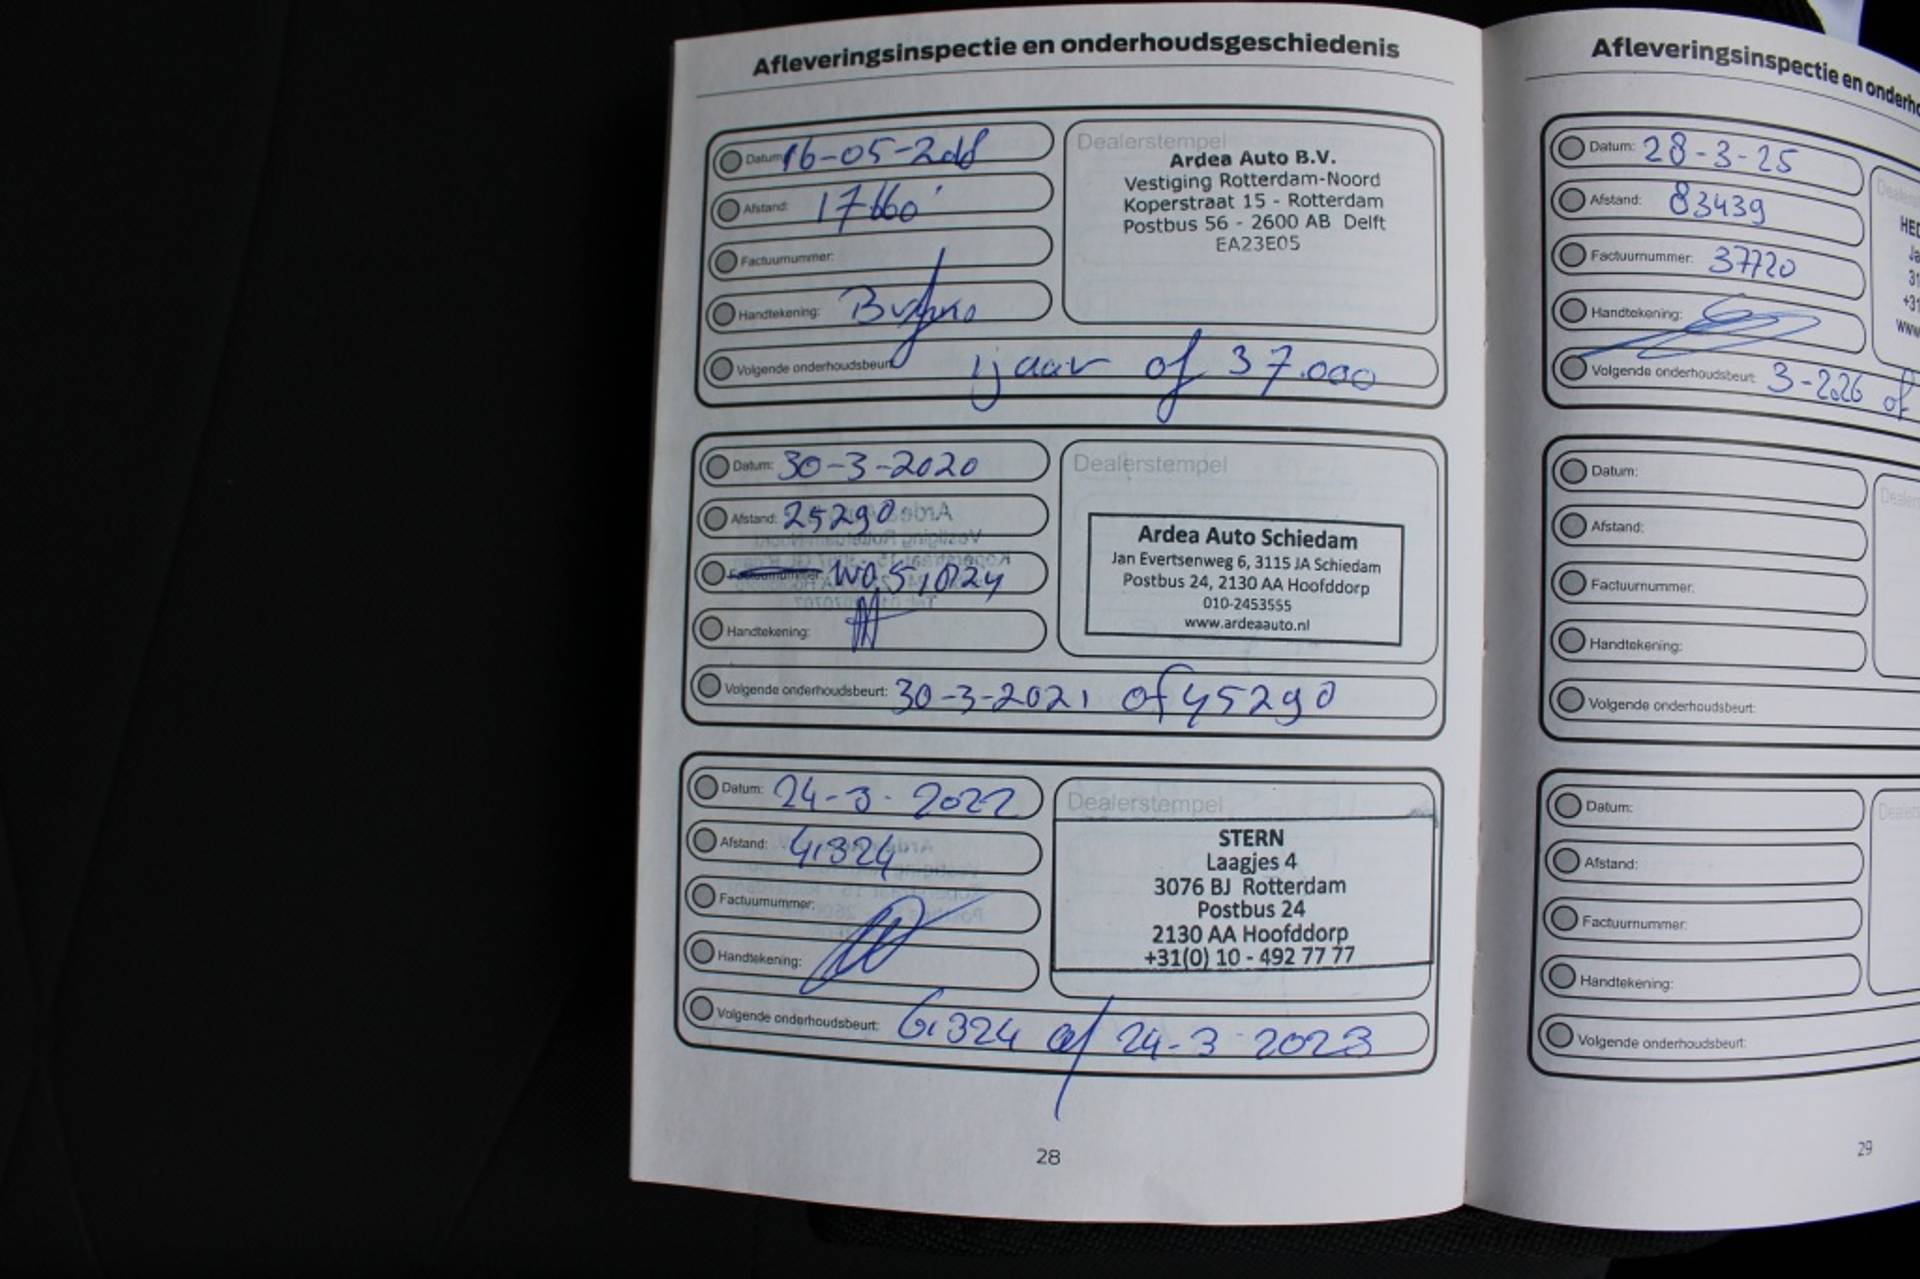 Afleveringsinspectie en onderhoudsgeschiedenis
Datum: 16-05-2018
Afstand: 17660
Factuurnummer:
Handtekening:
Volgende onderhoudsbeurt: 1 jaar of 37.000
Dealerstempel
Ardea Auto B.V.
Vestiging Rotterdam-Noord
Koperstraat 15 - Rotterdam
Postbus 56 - 2600 AB Delft
EA23E05
Datum: 30-3-2020
Afstand: 25290
Factuurnummer:
Handtekening:
Volgende onderhoudsbeurt: 30-3-2021 of 45290
Dealerstempel
Ardea Auto Schiedam
Jan Evertsenweg 6, 3115 JA Schiedam
Postbus 24, 2130 AA Hoofddorp
010-2453555
www.ardeaauto.nl
Datum: 24-3-2022
Afstand: 41324
Factuurnummer:
Handtekening:
Volgende onderhoudsbeurt: 61324 of 24-3-2023
Dealerstempel
STERN
Laagjes 4
3076 BJ Rotterdam
Postbus 24
2130 AA Hoofddorp
+31(0) 10 - 492 77 77
28
Afleveringsinspectie en onderho
Datum: 28-3-25
Afstand: 83439
Factuurnummer: 37720
Handtekening:
Volgende onderhoudsbeurt: 3-2026 of
HED
Ja
31
+31
www
Datum:
Afstand:
Factuurnummer:
Handtekening:
Volgende onderhoudsbeurt:
Dealers
Datum:
Afstand:
Factuurnummer:
Handtekening:
Volgende onderhoudsbeurt:
Dealers
29